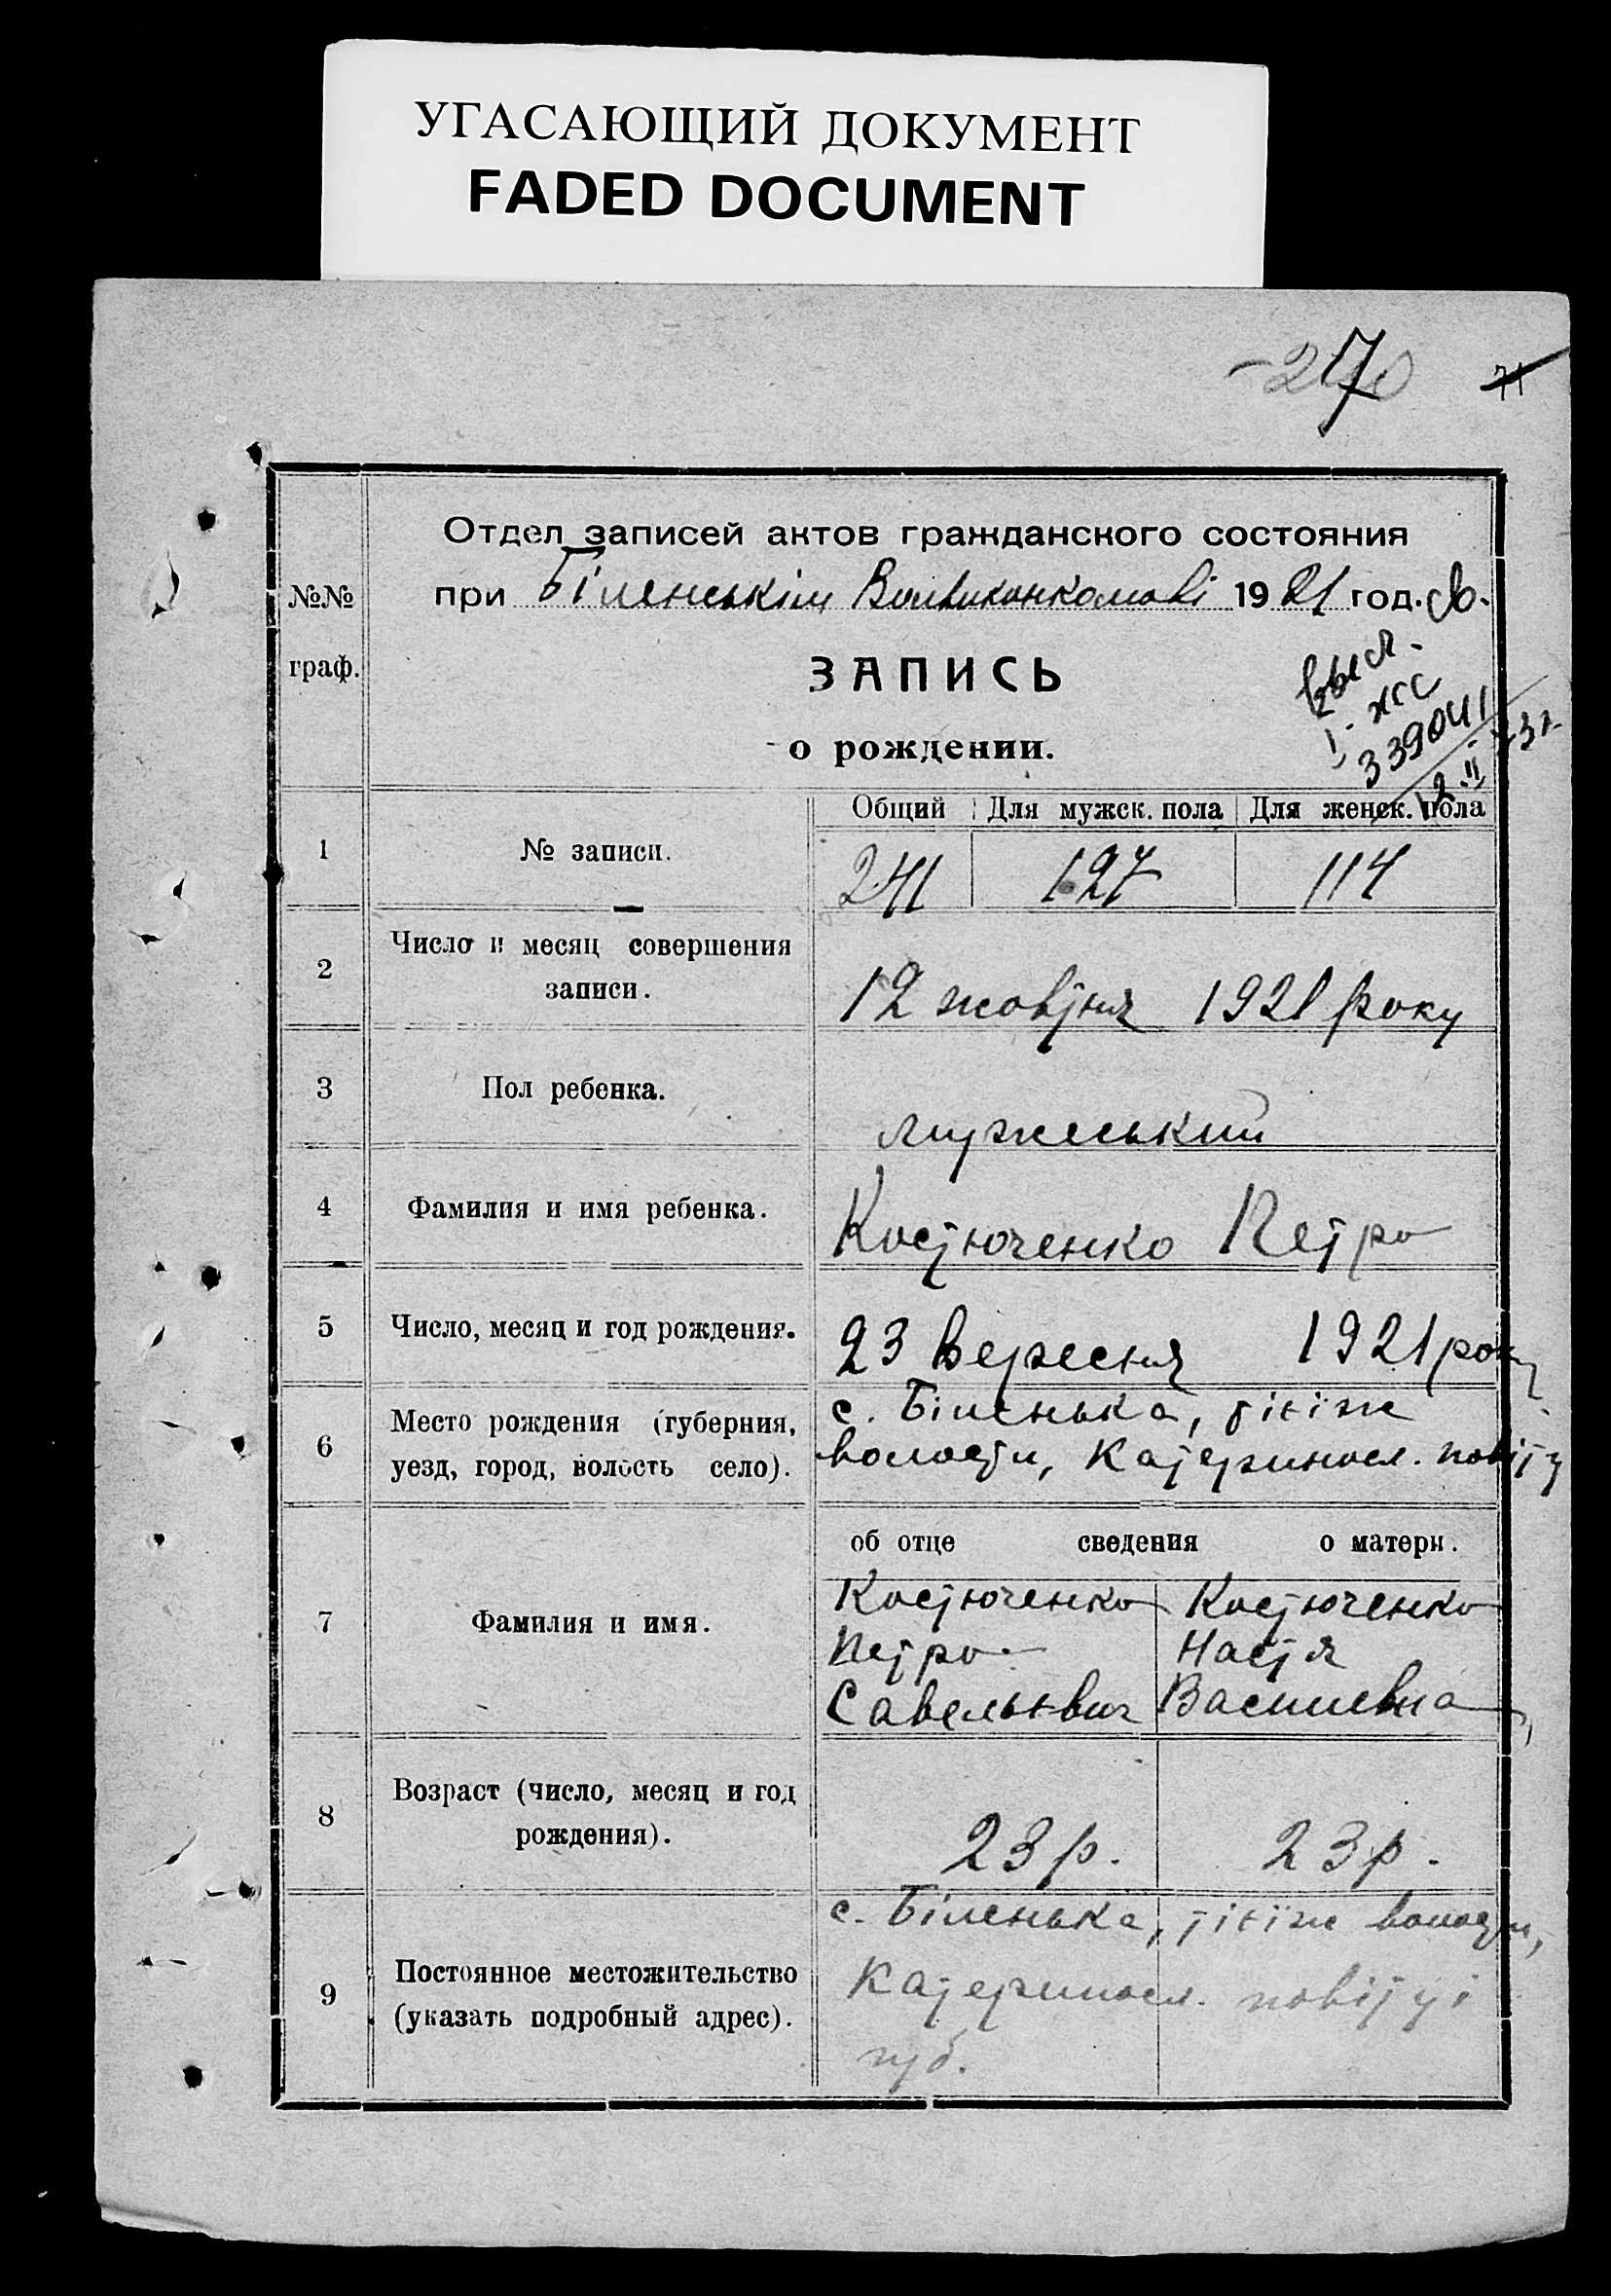 УГАСАЮЩИЙ ДОКУМЕНТ
FADED DOCUMENT
71
№№ граф.
Отдел записей актов гражданского состояния
при Біленськім Волвиконкомові 1921 год.
ЗАПИСЬ
о рождении.
I - жсс
339041
12.II
Общий Для мужск. пола Для женск. пола
1 № записи. 241 127 114
2 Число и месяц совершения
записи. 12 жовтня 1921 року
3 Пол ребенка. мужеський
4 Фамилия и имя ребенка. Костюченко Петро
5 Число, месяц и год рождения. 23 вересня 1921 року
6 Место рождения (губерния,
уезд, город, волость село).
с. Біленька, тієїж
волости, Катериносл. повіту
об отце сведения о матери.
7 Фамилия и имя.
Костюченко Костюченко
Петро Настя
Савельєвич Василевна
8 Возраст (число, месяц и год
рождения). 23 р. 23 р.
9 Постоянное местожительство
(указать подробный адрес).
с. Біленька, тієїж волости,
Катериносл. повіту і
губ.